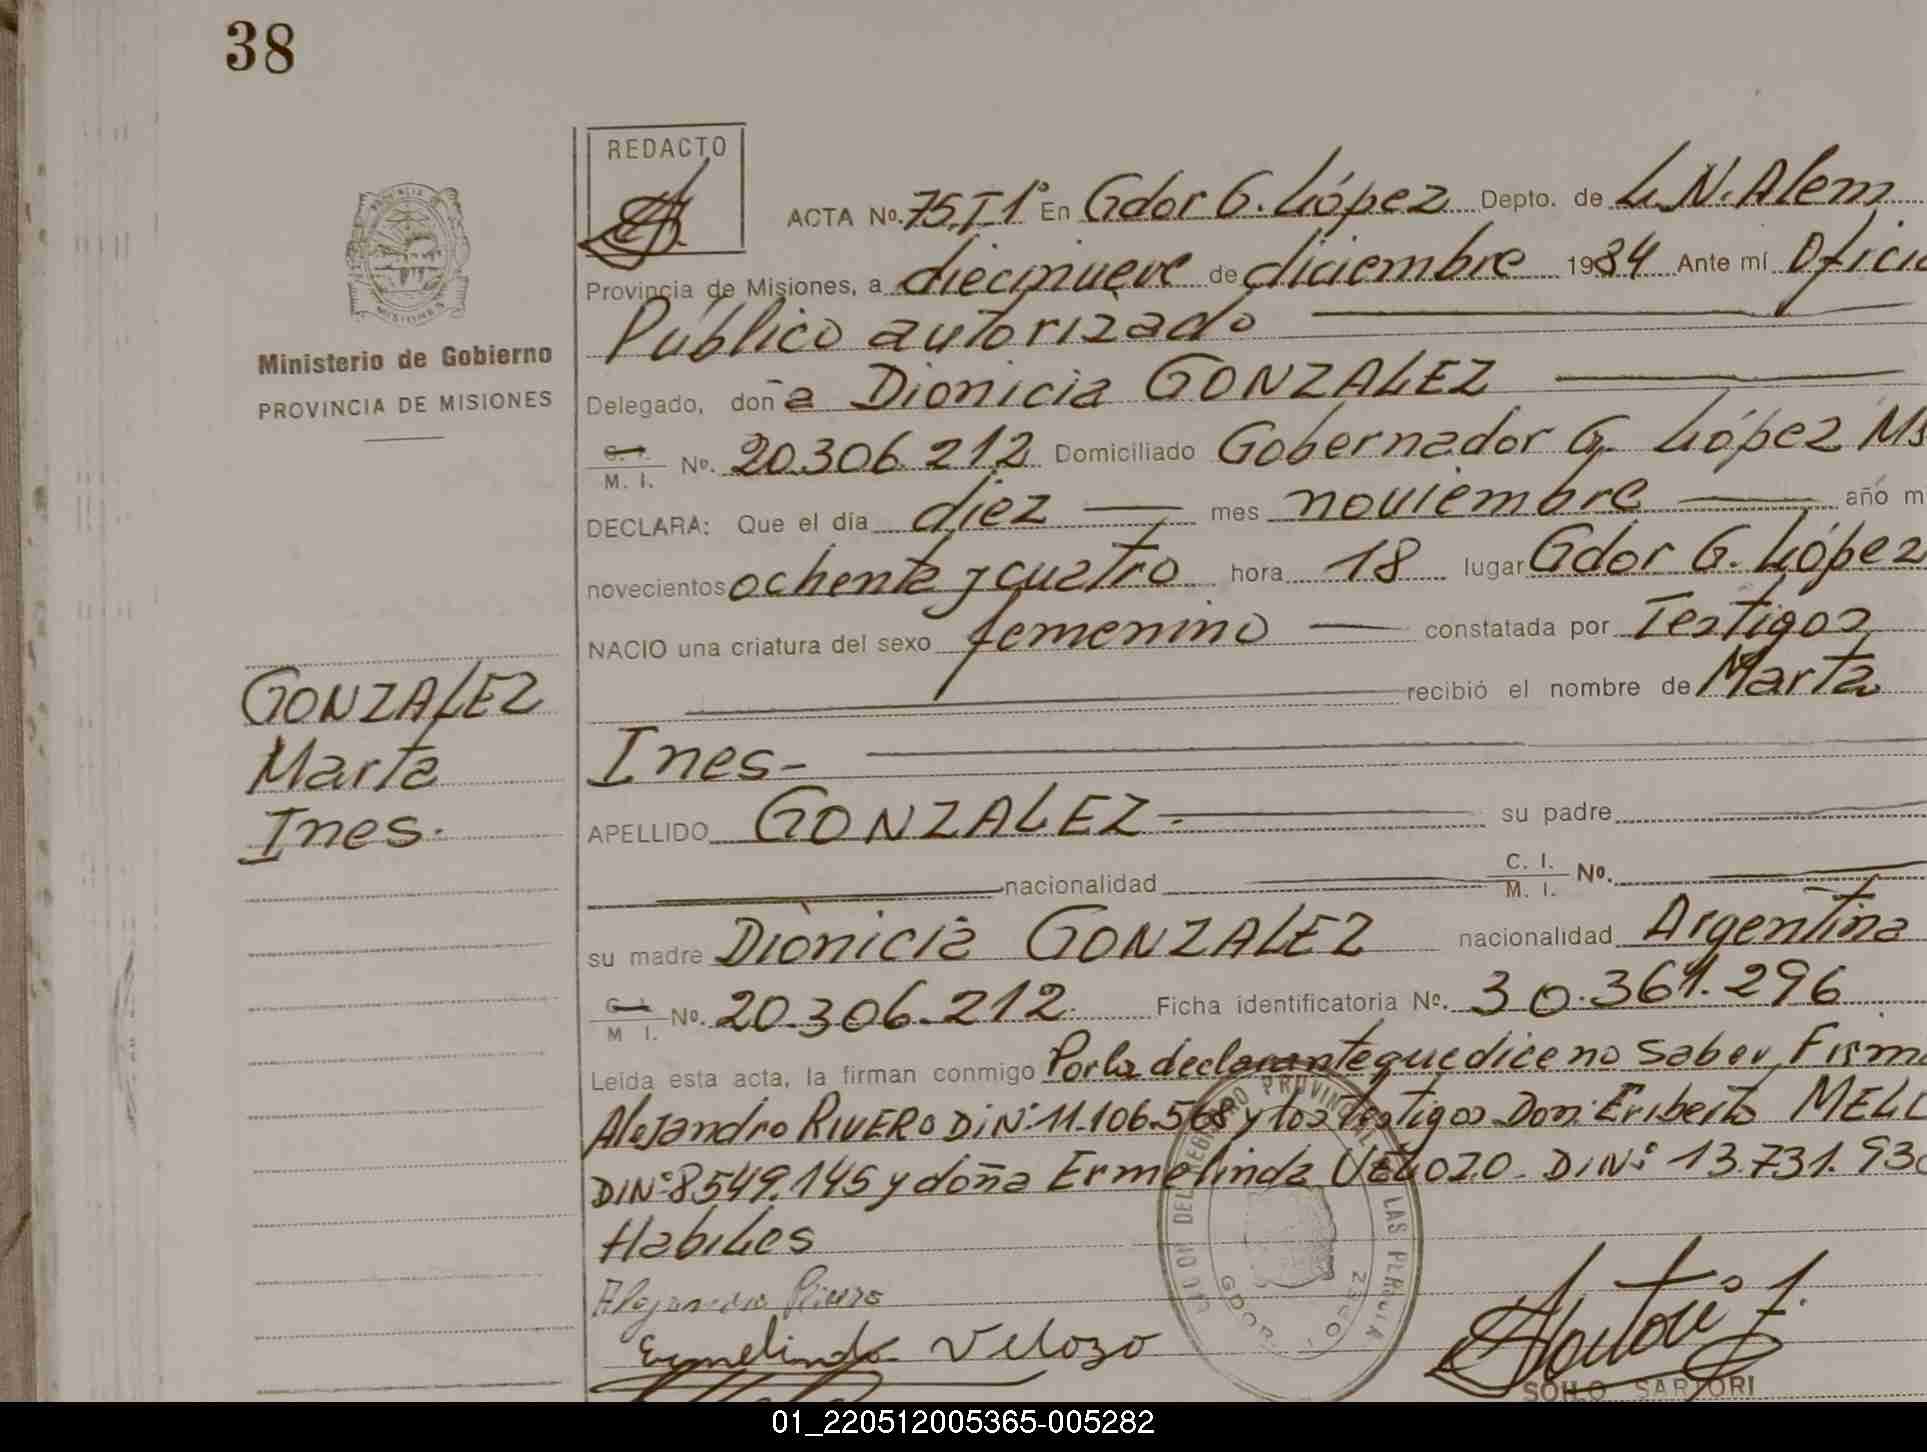 38
REDACTO
ACTA No. 75.T1° En Gdor G. López Depto. de L.N.Alem
Provincia de Misiones, a diecinueve de diciembre 1984 Ante mí Oficia
Público autorizado
Ministerio de Gobierno
PROVINCIA DE MISIONES
Delegado, doña Dionicia GONZALEZ
C. I.
M. I. No. 20.306.212 Domiciliado Gobernador G. López Ms
DECLARA: Que el día diez mes noviembre año m
novecientos ochenta y cuatro hora 18 lugar Gdor G. López
NACIO una criatura del sexo femenino constatada por Testigos
recibió el nombre de Marta
GONZALEZ
Marta
Ines.
Ines-
APELLIDO GONZALEZ.- su padre
nacionalidad C. I.
M. I. No.
su madre Dionicia GONZALEZ nacionalidad Argentina
C. I.
M I. No. 20.306.212. Ficha identificatoria No. 30.361.296
Leída esta acta, la firman conmigo Por la declarante que dice no saber Firma
Alejandro RIVERO DiN° 11.106.568 y los testigos Don: Eriberto MELL
DIN° 8549.145 y doña Ermelinda VELOZO. DIN° 13.731.93
Habiles
Alejandro Rivero
Ermelinda Velozo
DEL REGISTRO PROVINCIAL LAS PERSONAS
GDOR.
SOILO SARTORI
01_220512005365-005282